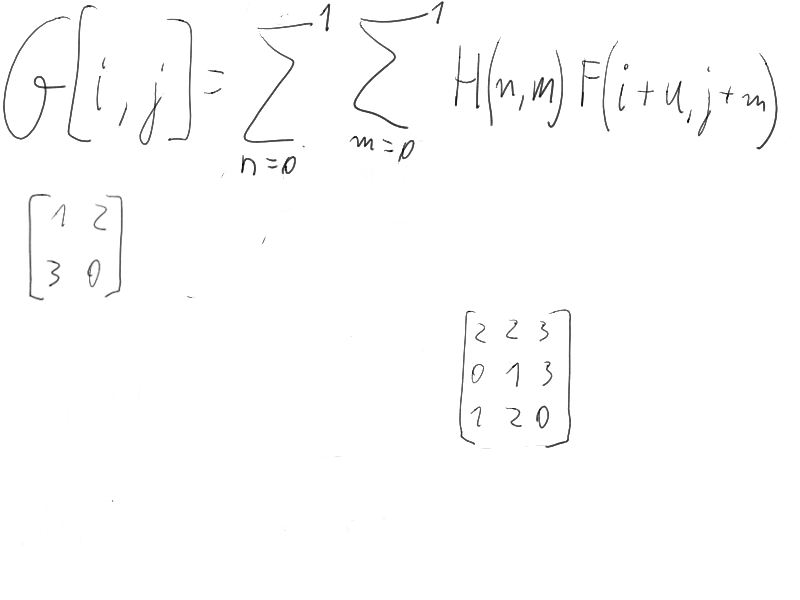 G[i,j] = ∑_{n=0}^{1} ∑_{m=0}^{1} H(n,m) F(i+u, j+m)
[1 2
3 0]
[2 2 3
0 1 3
1 2 0]